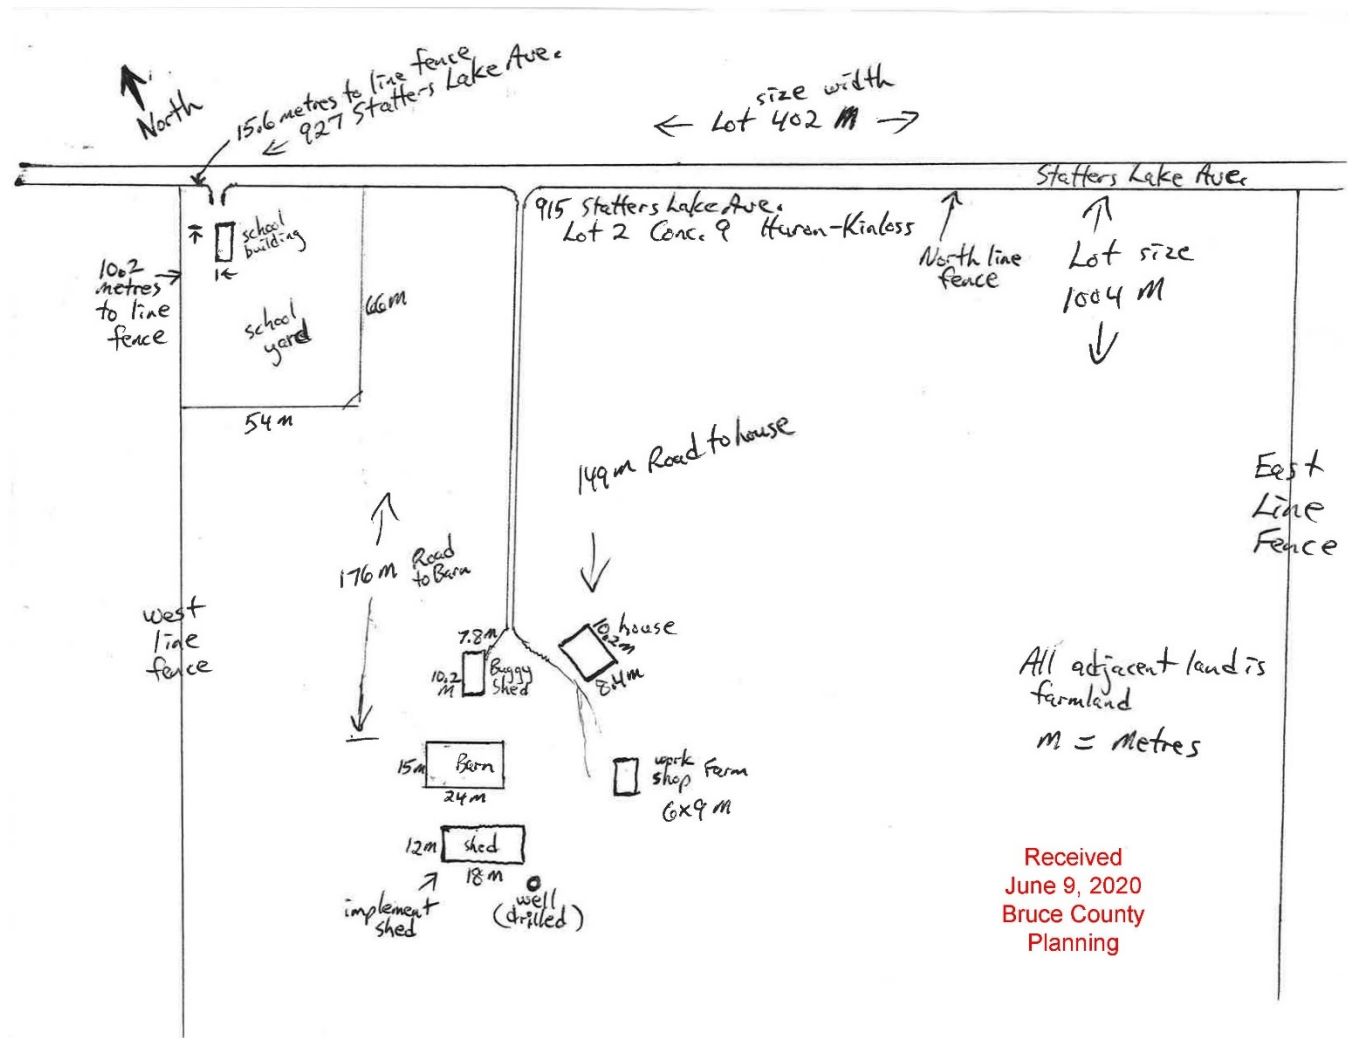 North
15.6 metres to line fence
← 927 Statters Lake Ave.
size width
← Lot 402 M →
Statters Lake Ave.
915 Statters Lake Ave.
Lot 2 Conc. 9 Huron-Kinloss
North line
fence
Lot size
1004 M
school
building
10.2
metres
to line
fence
school
yard
66m
54m
149m Road to house
East
Line
Fence
176m Road
to Barn
west
line
fence
7.8m
10.2
M
Buggy
shed
house
10.2m
8.4m
All adjacent land is
farmland
m = Metres
15m
Barn
24m
work
shop Farm
6x9 M
12m
shed
18m
implement
shed
well
(drilled)
Received
June 9, 2020
Bruce County
Planning